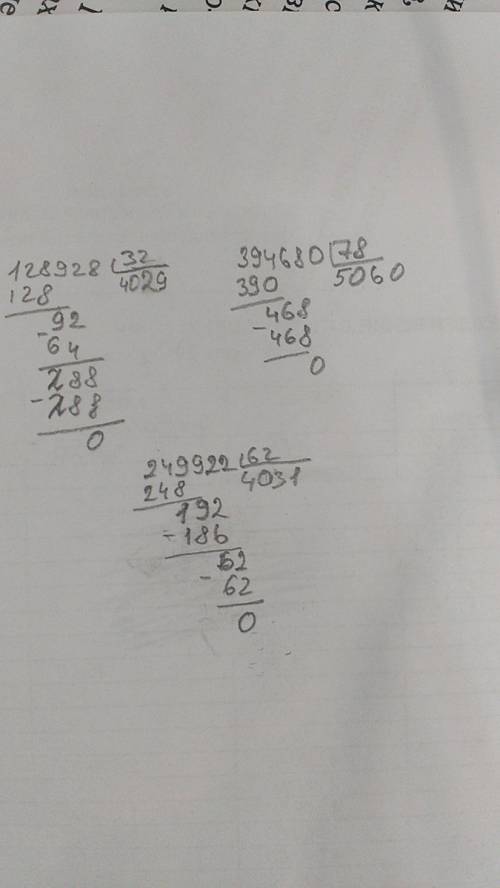 128928 32
128 4029
- 92
64
288
- 288
0
394680 78
390 5060
468
- 468
0
249922 62
248 4031
192
- 186
62
- 62
0